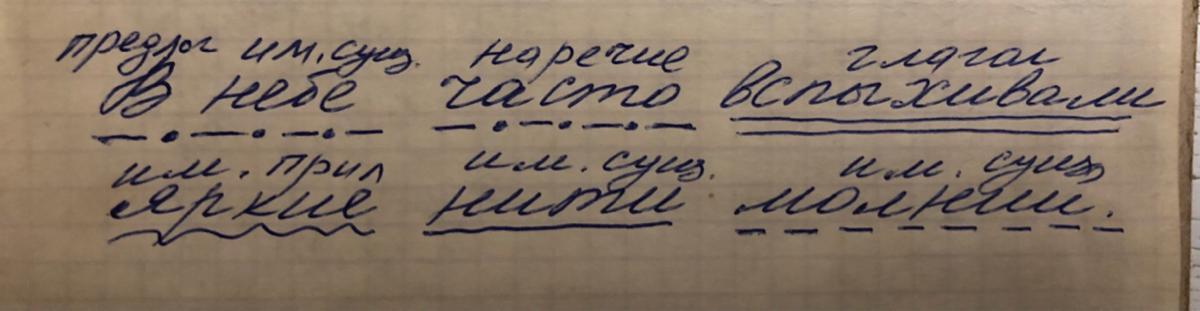 предлог им. сущ. наречие глагол
В небе часто вспыхивали
им. прил им. сущ. им. сущ
яркие нити молнии.